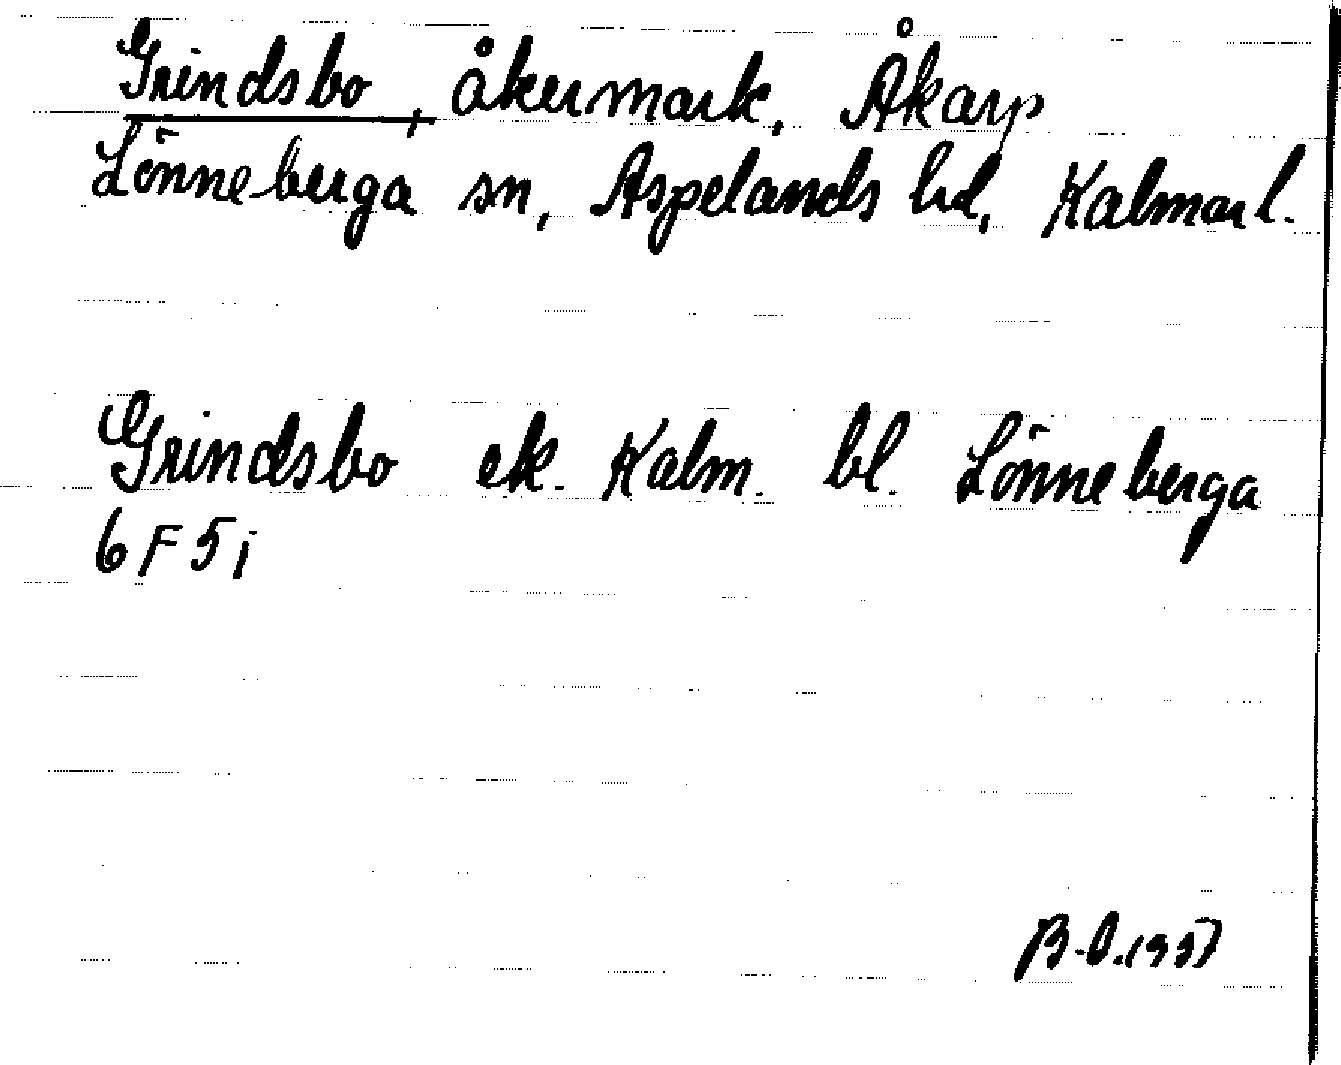 Grindsbo, åkermark, Åkarp
Lönneberga sn, Aspelands hd, Kalmar l.
Grindsbo ek. Kalm. bl. Lönneberga
6F5i
B-O.1957